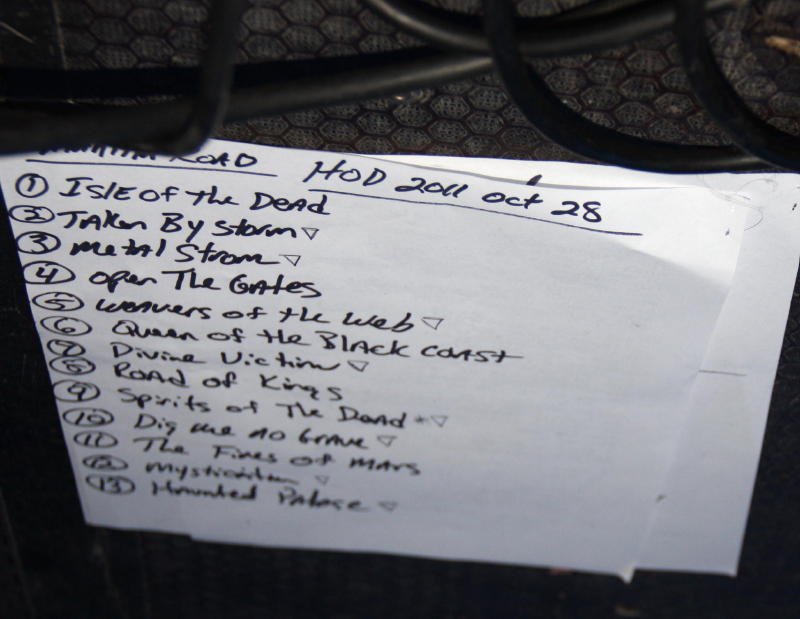 ROAD HOD 2011 oct 28
① ISLE of the DeAD
② TAken By Storm ▽
③ metal Strom ▽
④ open The GAtes
⑤ weavers of the web ▽
⑥ Queen of the BLAck coast
⑦ Divine Victim ▽
⑧ ROAD of Kings
⑨ Spirits of The Dead *▽
⑩ Dig me no Grave ▽
⑪ The Fires of MArs
⑫ ▽
⑬ Haunted Palace ▽